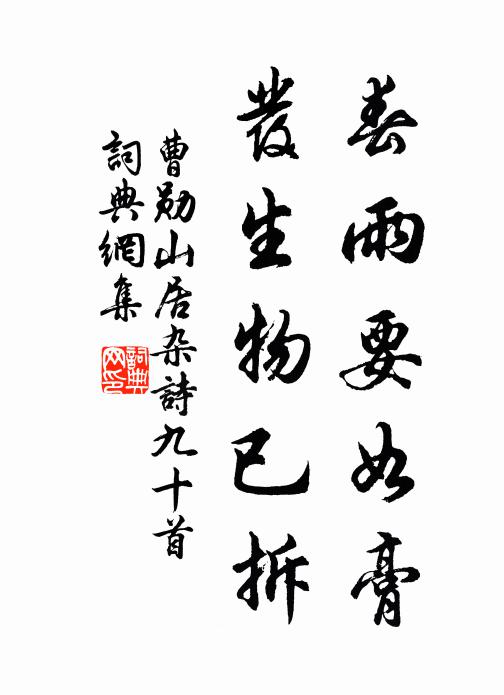 春雨要如膏
發生物已拆
曹勛山居杂詩九十首
詞典網集
詞典网印